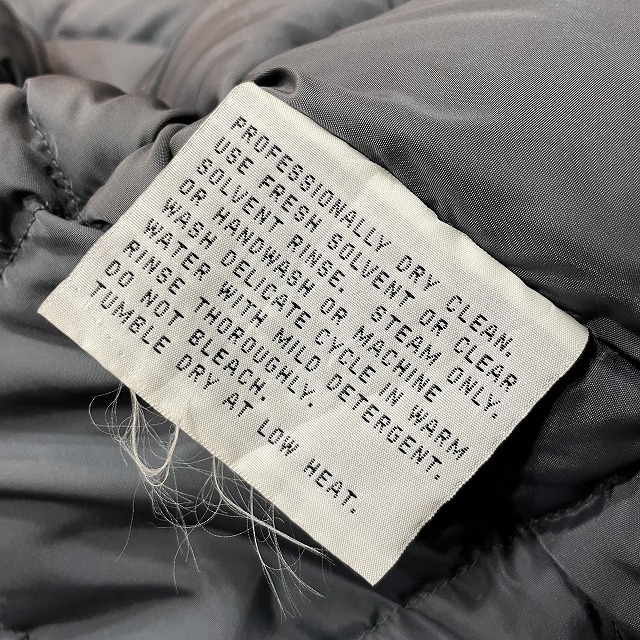 PROFESSIONALLY DRY CLEAN.
USE FRESH SOLVENT OR CLEAR
SOLVENT RINSE. STEAM ONLY.
OR HANDWASH OR MACHINE
WASH DELICATE CYCLE IN WARM
WATER WITH MILD DETERGENT.
RINSE THOROUGHLY.
DO NOT BLEACH.
TUMBLE DRY AT LOW HEAT.